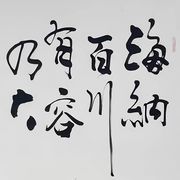 海納
百川
有容
乃大